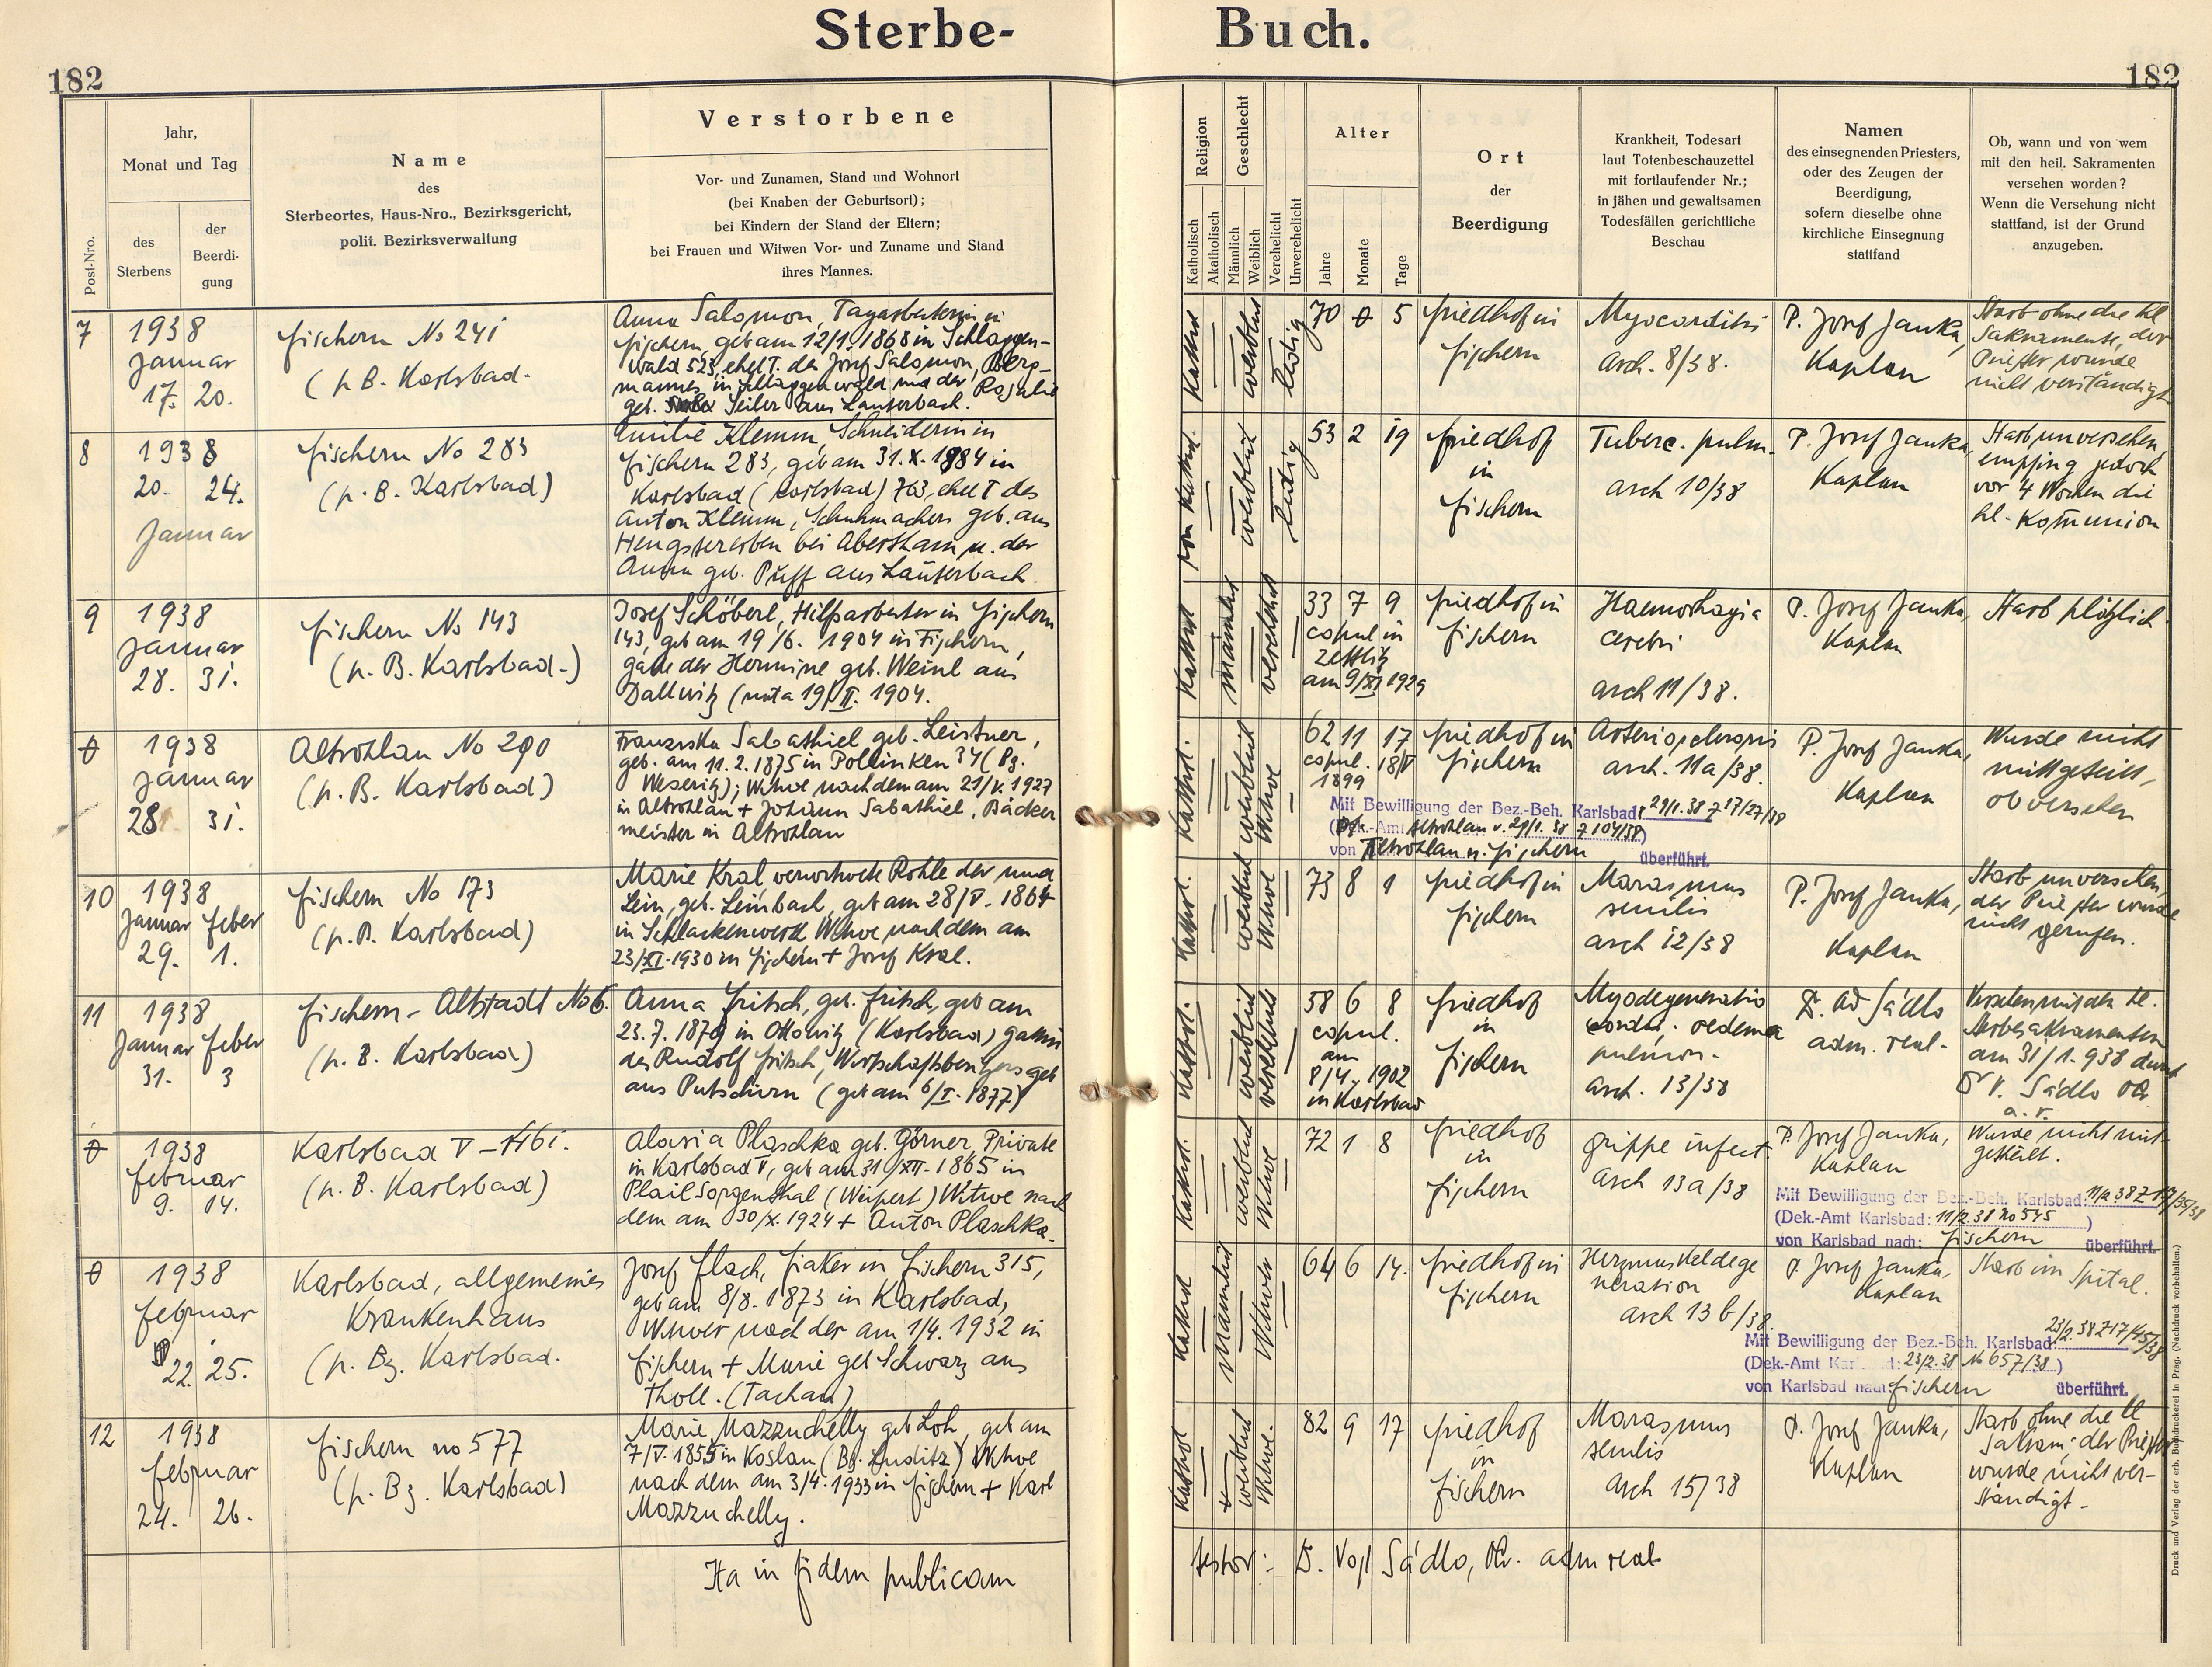 Sterbe- Buch.
182
182
Post-Nro.
Jahr,
Monat und Tag
des
Sterbens
der
Beerdi-
gung
Name
des
Sterbeortes, Haus-Nro., Bezirksgericht,
polit. Bezirksverwaltung
Verstorbene
Vor- und Zunamen, Stand und Wohnort
(bei Knaben der Geburtsort);
bei Kindern der Stand der Eltern;
bei Frauen und Witwen Vor- und Zuname und Stand
ihres Mannes.
Religion
Katholisch
Akatholisch
Geschlecht
Männlich
Weiblich
Verehelicht
Unverehelicht
Alter
Jahre
Monate
Tage
Ort
der
Beerdigung
Krankheit, Todesart
laut Totenbeschauzettel
mit fortlaufender Nr.;
in jähen und gewaltsamen
Todesfällen gerichtliche
Beschau
Namen
des einsegnenden Priesters,
oder des Zeugen der
Beerdigung,
sofern dieselbe ohne
kirchliche Einsegnung
stattfand
Ob, wann und von wem
mit den heil. Sakramenten
versehen worden?
Wenn die Versehung nicht
stattfand, ist der Grund
anzugeben.
7
1938
Januar
17. 20.
Fischern No 241
(p. B. Karlsbad.
Anna Salomon, Tagarbeiterin in
Fischern, geb am 12/1. 1868 in Schlaggen-
wald 523, ehel T. des Josef Salomon, Berg-
mannes in Schlaggenwald und der Rosalie
geb. Seiler aus Lauterbach.
Kathol
weiblich
ledig
70 0 5
Friedhof in
Fischern
Myocarditis
arch. 8/38.
P. Josef Janka,
Kaplan
Starb ohne die hl
Sakramente, der
Priester wurde
nicht verständigt
8
1938
20. 24.
Januar
Fischern No 283
(p. B. Karlsbad)
Emilie Klemm, Schneiderin in
Fischern 283, geb am 31. X. 1884 in
Karlsbad (Karlsbad) 763, ehel T des
Anton Klemm, Schuhmachers geb. aus
Hengstererben bei Abertham u. der
Anna geb. Puff aus Lauterbach
röm kathol.
weiblich
ledig
53 2 19
Friedhof
in
Fischern
Tuberc. pulm.
arch 10/38
P. Josef Janka,
Kaplan
Starb unversehen,
empfing jedoch
vor 4 Wochen die
hl. Kommunion
9
1938
Januar
28. 31.
Fischern No 143
(p. B. Karlsbad.)
Josef Schöberl, Hilfsarbeiter in Fischern
143, geb am 19/6. 1904 in Fischern,
Gatte der Hermine geb. Weinl aus
Dallwitz (nata 19/II. 1904.
Kathol
männlich
verehelicht
33 7 9
copul in
Zettlitz
am 9/XI 1929
Friedhof in
Fischern
Haemorhagia
cerebri
arch 11/38.
P. Josef Janka,
Kaplan
Starb plötzlich
0
1938
Januar
28 31.
Altrohlau No 290
(p. B. Karlsbad)
Franziska Sabathiel geb. Leistner,
geb. am 11. 2. 1875 in Pollinken 34 (Bz.
Weseritz); Witwe nach dem am 21/V. 1927
in Altrohlau + Johann Sabathiel, Bäcker
meister in Altrohlau
Kathol.
weiblich
Witwe
62 11 17
copul. 18/V
1899
Friedhof in
Fischern
arch. 11a/38.
P. Josef Janka,
Kaplan
Wurde nicht
mitgeteilt,
ob versehen
Mit Bewilligung der Bez.-Beh. Karlsbad: 29/1. 38 Z 17/27/38
(Dek.-Amt Altrohlau v. 29/1. 38 Z 104/38)
von Altrohlau n. Fischern überführt.
10
1938
Januar Feber
29. 1.
Fischern No 173
(p. B. Karlsbad)
Marie Kral verwitwete Rohleder und
Lein, geb. Leimbach, geb am 28/V. 1864
in Schlackenwerth Witwe nach dem am
23/XI. 1930 in Fischern + Josef Kral.
Kathol.
weiblich
Witwe
73 8 1
Friedhof in
Fischern
Marasmus
senilis
arch 12/38
P. Josef Janka,
Kaplan
Starb unversehen,
der Priester wurde
nicht gerufen.
11
1938
Januar Feber
31. 3
Fischern - Altstadt No 6.
(p. B. Karlsbad)
Anna Fritsch, geb. Fritsch, geb am
23. 7. 1879 in Ottowitz (Karlsbad) Gattin
des Rudolf Fritsch, Wirtschaftsbesitzers geb
aus Putschirn (geb am 6/I. 1877)
Kathol.
weiblich
verehelicht
58 6 8
copul.
am
8/4. 1902
in Karlsbad
Friedhof
in
Fischern
Myodegeneratio
cordis. oedema
pulmon.
arch. 13/38
adm. real.
Versehen mit den hl.
Sterbesakramenten
am 31/1. 938 durch
Dr V. Sádlo
a. r.
0
1938
Februar
9. 14.
Karlsbad V - 1161.
(p. B. Karlsbad)
Aloisia Plaschka geb. Görner, Private
in Karlsbad V, geb am 31/XII. 1865 in
Plail Sorgenthal (Weipert) Witwe nach
dem am 30/X. 1924 + Anton Plaschka.
Kathol.
weiblich
Witwe
72 1 8
Friedhof
in
Fischern
Grippe infect.
arch 13a/38
P. Josef Janka,
Kaplan
Wurde nicht mit-
geteilt.
Mit Bewilligung der Bez.-Beh. Karlsbad: 11/2. 38 Z 17/35/38
(Dek.-Amt Karlsbad: 11/2. 38 No 545)
von Karlsbad nach: Fischern überführt.
0
1938
Februar
22. 25.
Karlsbad, allgemeines
Krankenhaus
(p. Bz. Karlsbad.
Josef Flach, Fiaker in Fischern 315,
geb am 8/8. 1873 in Karlsbad,
Witwer nach der am 1/4. 1932 in
Fischern + Marie geb Schwarz aus
Tholl. (Tachau)
Kathol
männlich
Witwer
64 6 14.
Friedhof in
Fischern
Herzmuskeldege
neration
arch 13 b/38.
P. Josef Janka,
Kaplan
Starb im Spital.
Mit Bewilligung der Bez.-Beh. Karlsbad: 23/2. 38 Z 17/45/38
(Dek.-Amt Karlsbad: 23/2. 38 No 657/38)
von Karlsbad nach: Fischern überführt.
12
1938
Februar
24. 26.
Fischern no 577
(p. Bz. Karlsbad)
Marie Mazzuchelly geb Loh, geb am
7/V. 1855 in Koslau (Bz. Luditz) Witwe
nach dem am 3/4. 1933 in Fischern + Karl
Mazzuchelly.
Kathol
weiblich
Witwe.
82 9 17
Friedhof
in
Fischern
Marasmus
senilis
arch 15/38
P. Josef Janka,
Kaplan
Starb ohne die hl
Sakram. der Priester
wurde nicht ver-
ständigt.
Ita in fidem publicam
testor: Sádlo, adm real
Druck und Verlag der erb. Buchdruckerei in Prag. (Nachdruck vorbehalten.)